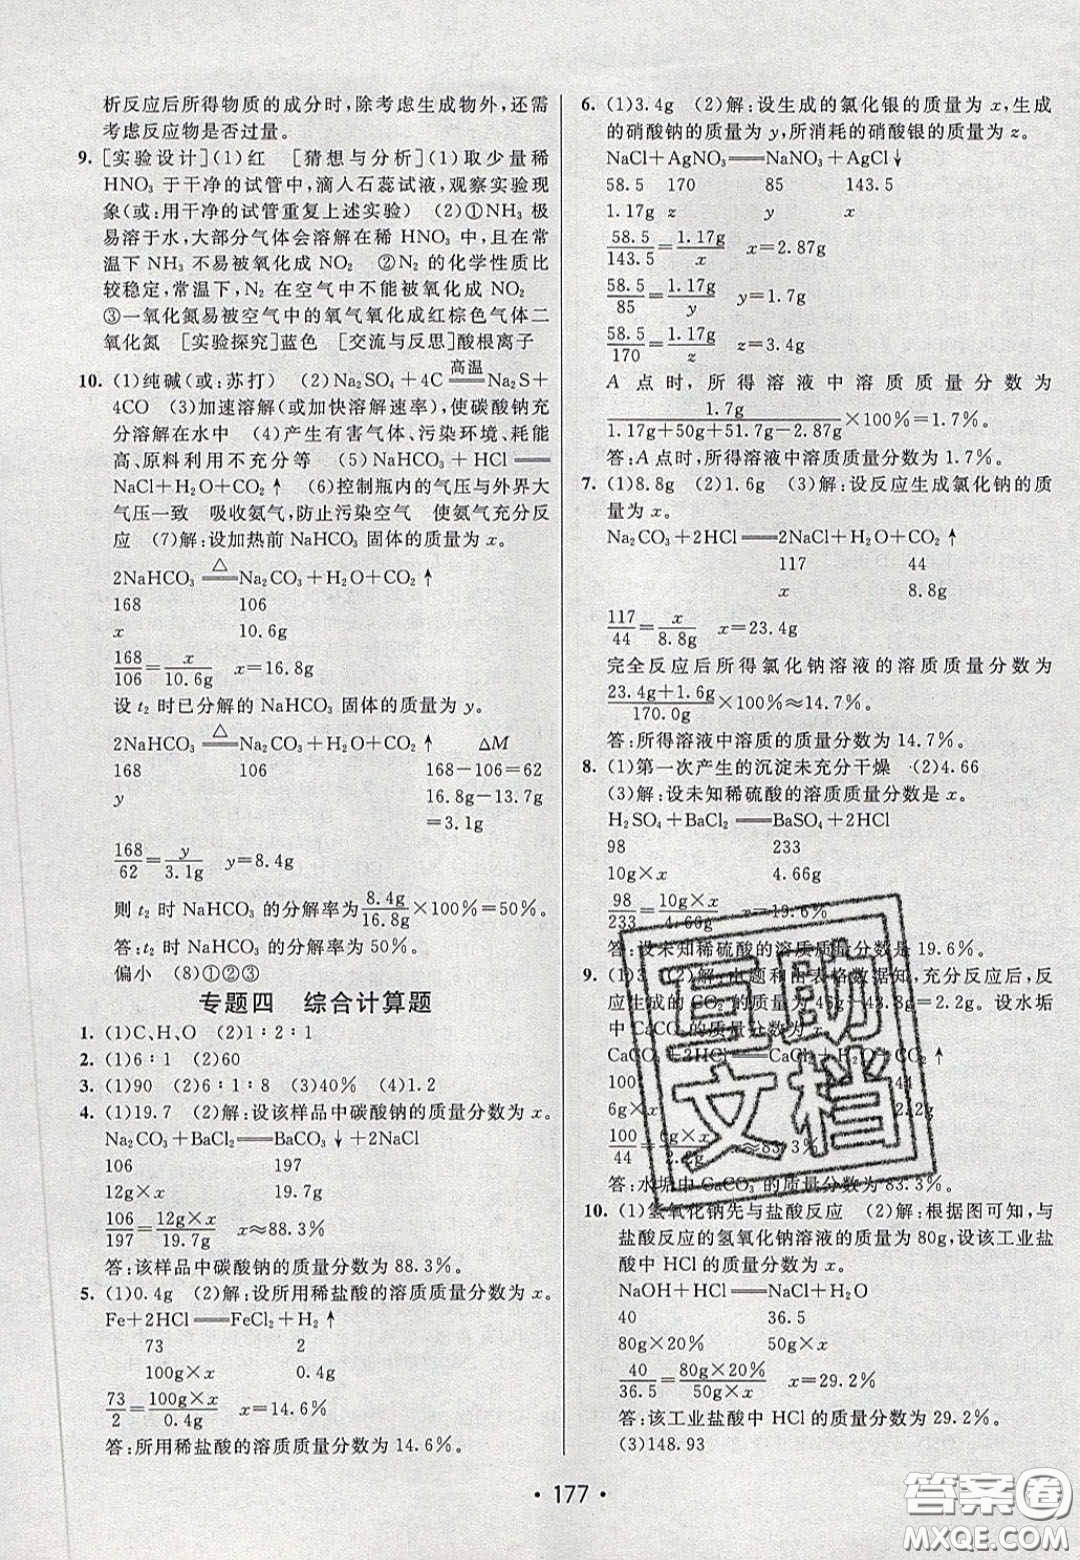 析反应后所得物质的成分时,除考虑生成物外,还需
考虑反应物是否过量。
9. [实验设计](1)红 [猜想与分析](1)取少量稀
HNO₃ 于干净的试管中,滴入石蕊试液,观察实验现
象(或:用干净的试管重复上述实验) (2)①NH₃ 极
易溶于水,大部分气体会溶解在稀 HNO₃ 中,且在常
温下 NH₃ 不易被氧化成 NO₂ ②N₂ 的化学性质比
较稳定,常温下,N₂ 在空气中不能被氧化成 NO₂
③一氧化氮易被空气中的氧气氧化成红棕色气体二
氧化氮 [实验探究]蓝色 [交流与反思]酸根离子
10. (1)纯碱(或:苏打) (2)Na₂SO₄+4C 高温══ Na₂S+
4CO (3)加速溶解(或加快溶解速率),使碳酸钠充
分溶解在水中 (4)产生有害气体、污染环境、耗能
高、原料利用不充分等 (5)NaHCO₃+HCl══
NaCl+H₂O+CO₂↑ (6)控制瓶内的气压与外界大
气压一致 吸收氨气,防止污染空气 使氨气充分反
应 (7)解:设加热前 NaHCO₃ 固体的质量为 x。
2NaHCO₃ △══ Na₂CO₃+H₂O+CO₂↑
168 106
x 10.6g
168/106=x/10.6g x=16.8g
设 t₂ 时已分解的 NaHCO₃ 固体的质量为 y。
2NaHCO₃ △══ Na₂CO₃+H₂O+CO₂↑ ΔM
168 106 168-106=62
y 16.8g-13.7g
=3.1g
168/62=y/3.1g y=8.4g
则 t₂ 时 NaHCO₃ 的分解率为8.4g/16.8g×100%=50%。
答:t₂ 时 NaHCO₃ 的分解率为 50%。
偏小 (8)①②③
专题四 综合计算题
1. (1)C、H、O (2)1∶2∶1
2. (1)6∶1 (2)60
3. (1)90 (2)6∶1∶8 (3)40% (4)1.2
4. (1)19.7 (2)解:设该样品中碳酸钠的质量分数为 x。
Na₂CO₃+BaCl₂══BaCO₃↓+2NaCl
106 197
12g×x 19.7g
106/197=12g×x/19.7g x≈88.3%
答:该样品中碳酸钠的质量分数为 88.3%。
5. (1)0.4g (2)解:设所用稀盐酸的溶质质量分数为 x。
Fe+2HCl══FeCl₂+H₂↑
73 2
100g×x 0.4g
73/2=100g×x/0.4g x=14.6%
答:所用稀盐酸的溶质质量分数为 14.6%。
6. (1)3.4g (2)解:设生成的氯化银的质量为 x,生成
的硝酸钠的质量为 y,所消耗的硝酸银的质量为 z。
NaCl+AgNO₃══NaNO₃+AgCl↓
58.5 170 85 143.5
1.17g z y x
58.5/143.5=1.17g/x x=2.87g
58.5/85=1.17g/y y=1.7g
58.5/170=1.17g/z z=3.4g
A 点时,所得溶液中溶质质量分数为
1.7g/1.17g+50g+51.7g-2.87g×100%=1.7%。
答:A 点时,所得溶液中溶质质量分数为 1.7%。
7. (1)8.8g (2)1.6g (3)解:设反应生成氯化钠的质
量为 x。
Na₂CO₃+2HCl══2NaCl+H₂O+CO₂↑
117 44
x 8.8g
117/44=x/8.8g x=23.4g
完全反应后所得氯化钠溶液的溶质质量分数为
23.4g+1.6g/170.0g×100%≈14.7%。
答:所得溶液中溶质的质量分数为 14.7%。
8. (1)第一次产生的沉淀未充分干燥 (2)4.66
(3)解:设未知稀硫酸的溶质质量分数是 x。
H₂SO₄+BaCl₂══BaSO₄+2HCl
98 233
10g×x 4.66g
98/233=10g×x/4.66g x=19.6%
答:设未知稀硫酸的溶质质量分数是 19.6%。
9. (1)3 (2)解:由题和由表格数据知,充分反应后,反
应生成的 CO₂ 的质量为 46g-43.8g=2.2g。设水垢
中 CaCO₃ 的质量分数为 x。
CaCO₃+2HCl══CaCl₂+H₂O+CO₂↑
100 44
6g×x 2.2g
100/44=6g×x/2.2g x≈83.3%
答:水垢中 CaCO₃ 的质量分数为 83.3%。
10. (1)氢氧化钠先与盐酸反应 (2)解:根据图可知,与
盐酸反应的氢氧化钠溶液的质量为 80g,设该工业盐
酸中 HCl 的质量分数为 x。
NaOH+HCl══NaCl+H₂O
40 36.5
80g×20% 50g×x
40/36.5=80g×20%/50g×x x=29.2%
答:该工业盐酸中 HCl 的质量分数为 29.2%。
(3)148.93
互助
文档
• 177 •
答案卷
MXQE.COM